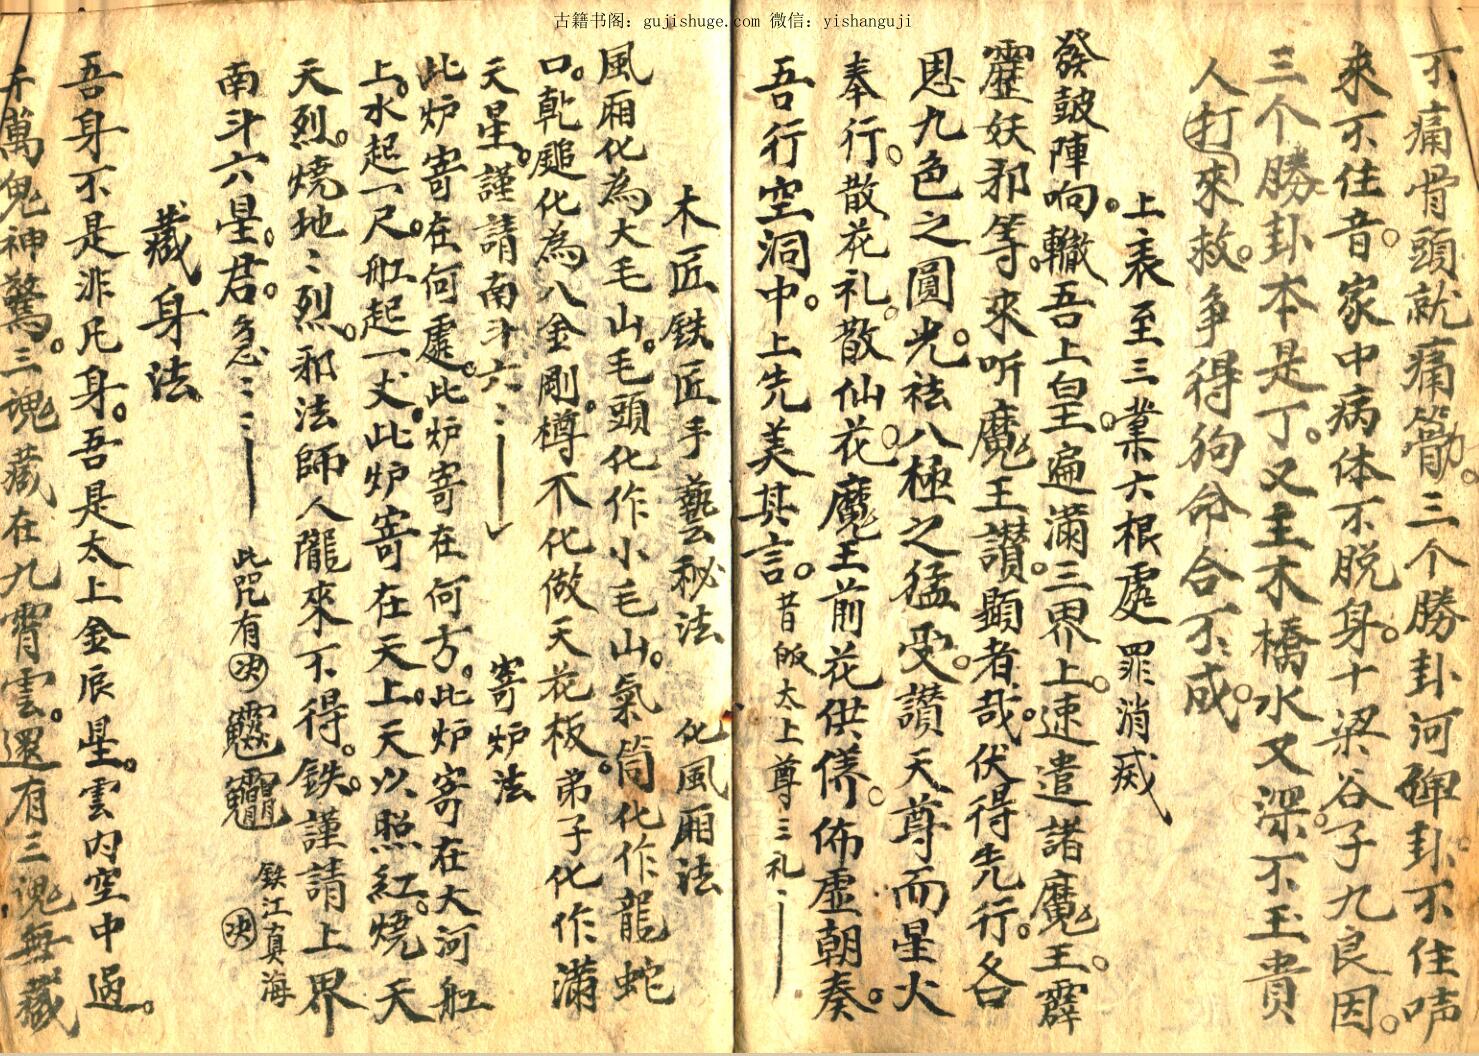 古籍书阁：gujishuge.com 微信：yishanguji
不痛骨頭就痛筋。三个勝卦河碑卦不住声
來不住音。家中病体不脫身。十梁谷子九良因。
三个勝卦本是丁。又主木橋水又深不王貴
人打來救。争得狗命合不成。
上表至三業六根處罪消滅
發鼓陣响。轍吾上皇。遍滿三界上。速遣諸魔王。霹
靂妖邪等。來听魔王讃。顯者哉。伏得先行。各
恩九色之圓光。袪八極之猛受。讃天尊而星火
奉行。散花礼。散仙花。魔王前花供俻。佈虛朝奏。
吾行空洞中。上先美其言。昔皈太上尊三礼
木匠铁匠手藝秘法 化風厢法
風厢化為大毛山。毛頭化作小毛山。氣筒化作龍蛇
口。乾颸化為八金剛。樽不化做天花板。弟子化作滿
天星。謹請南斗六 寄炉法
此炉寄在何處。此炉寄在何方。此炉寄在大河舡
上。水起一尺。舡起一丈。此炉寄在天上。天以照紅。燒天
天烈。燒地地烈。邪法師人隴來不得。鉄。謹請上界
南斗六星。君。急 此咒有决 决 鉄江真海
藏身法
吾身不是非凡身。吾是太上金辰星。雲内空中過。
千萬鬼神驚。三魂藏在九霄雲。還有三魂無藏